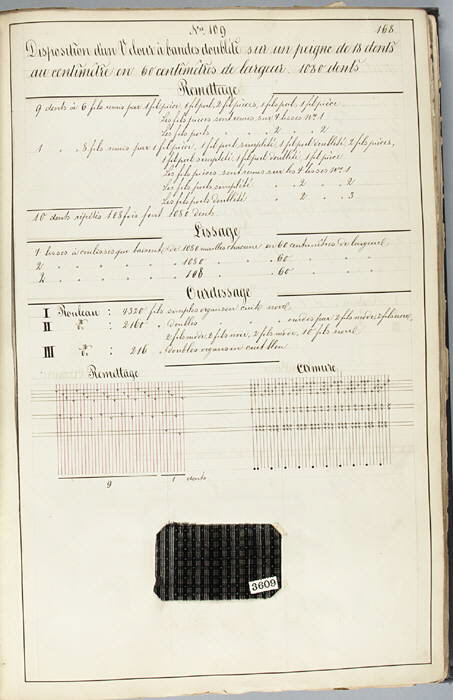 No. 109
168
Disposition d'un Velour à bandes doublete sur un peigne de 18 dents
au centimètre en 60 centimètres de largeur. 1080 dents
Remettage
9 dents à 6 fils remis par 1 fil pièce, 1 fil poil, 2 fils pièces, 1 fil poil, 1 fil pièce
Les fils pièces sont remis sur 4 lisses No. 1
Les fils poils . . . 2 . . 2
1 . . 8 fils remis par 1 fil pièce, 1 fil poil simpleté, 1 fil poil doubleté, 2 fils pièces,
1 fil poil simpleté, 1 fil poil doubleté, 1 fil pièce
Les fils pièces sont remis sur les 4 lisses No. 1
Les fils poils simpleté . . 2 . . 2
Les fils poils doubleté . . 2 . . 3
10 dents répétés 108 fois font 1080 dents
Lissage
lisses à coulisses de 1080 mailles chacune en 60 centimètres de largeur
2 . . . 1080 . . 60
2 . . . 108 . . 60
Ourdissage
I Rouleau : 4320 fils simples organsin cuit noir
II do. : 2160 . doubles . . ourdis par 2 fils noir,
2 fils 2 fils noir, 2 fils 10 fils noir
III do. : 216 . doubles organsin cuit bleu
Remettage
Armure
9 1 dents
3609